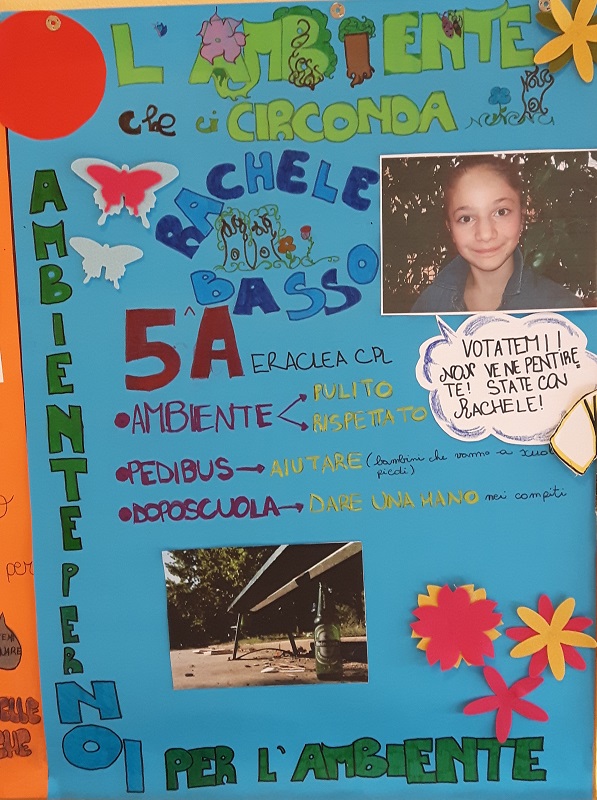 L'AMBIENTE
che ci CIRCONDA
AMBIENTE PER NOI
RACHELE
BASSO
5^A ERACLEA CPL
VOTATEMI!
NON VE NE PENTIRE
TE! STATE CON
RACHELE!
•AMBIENTE < PULITO
RISPETTATO
•PEDIBUS → AIUTARE (bambini che vanno a
piedi)
•DOPOSCUOLA → DARE UNA MANO nei compiti
per
NOI PER L'AMBIENTE